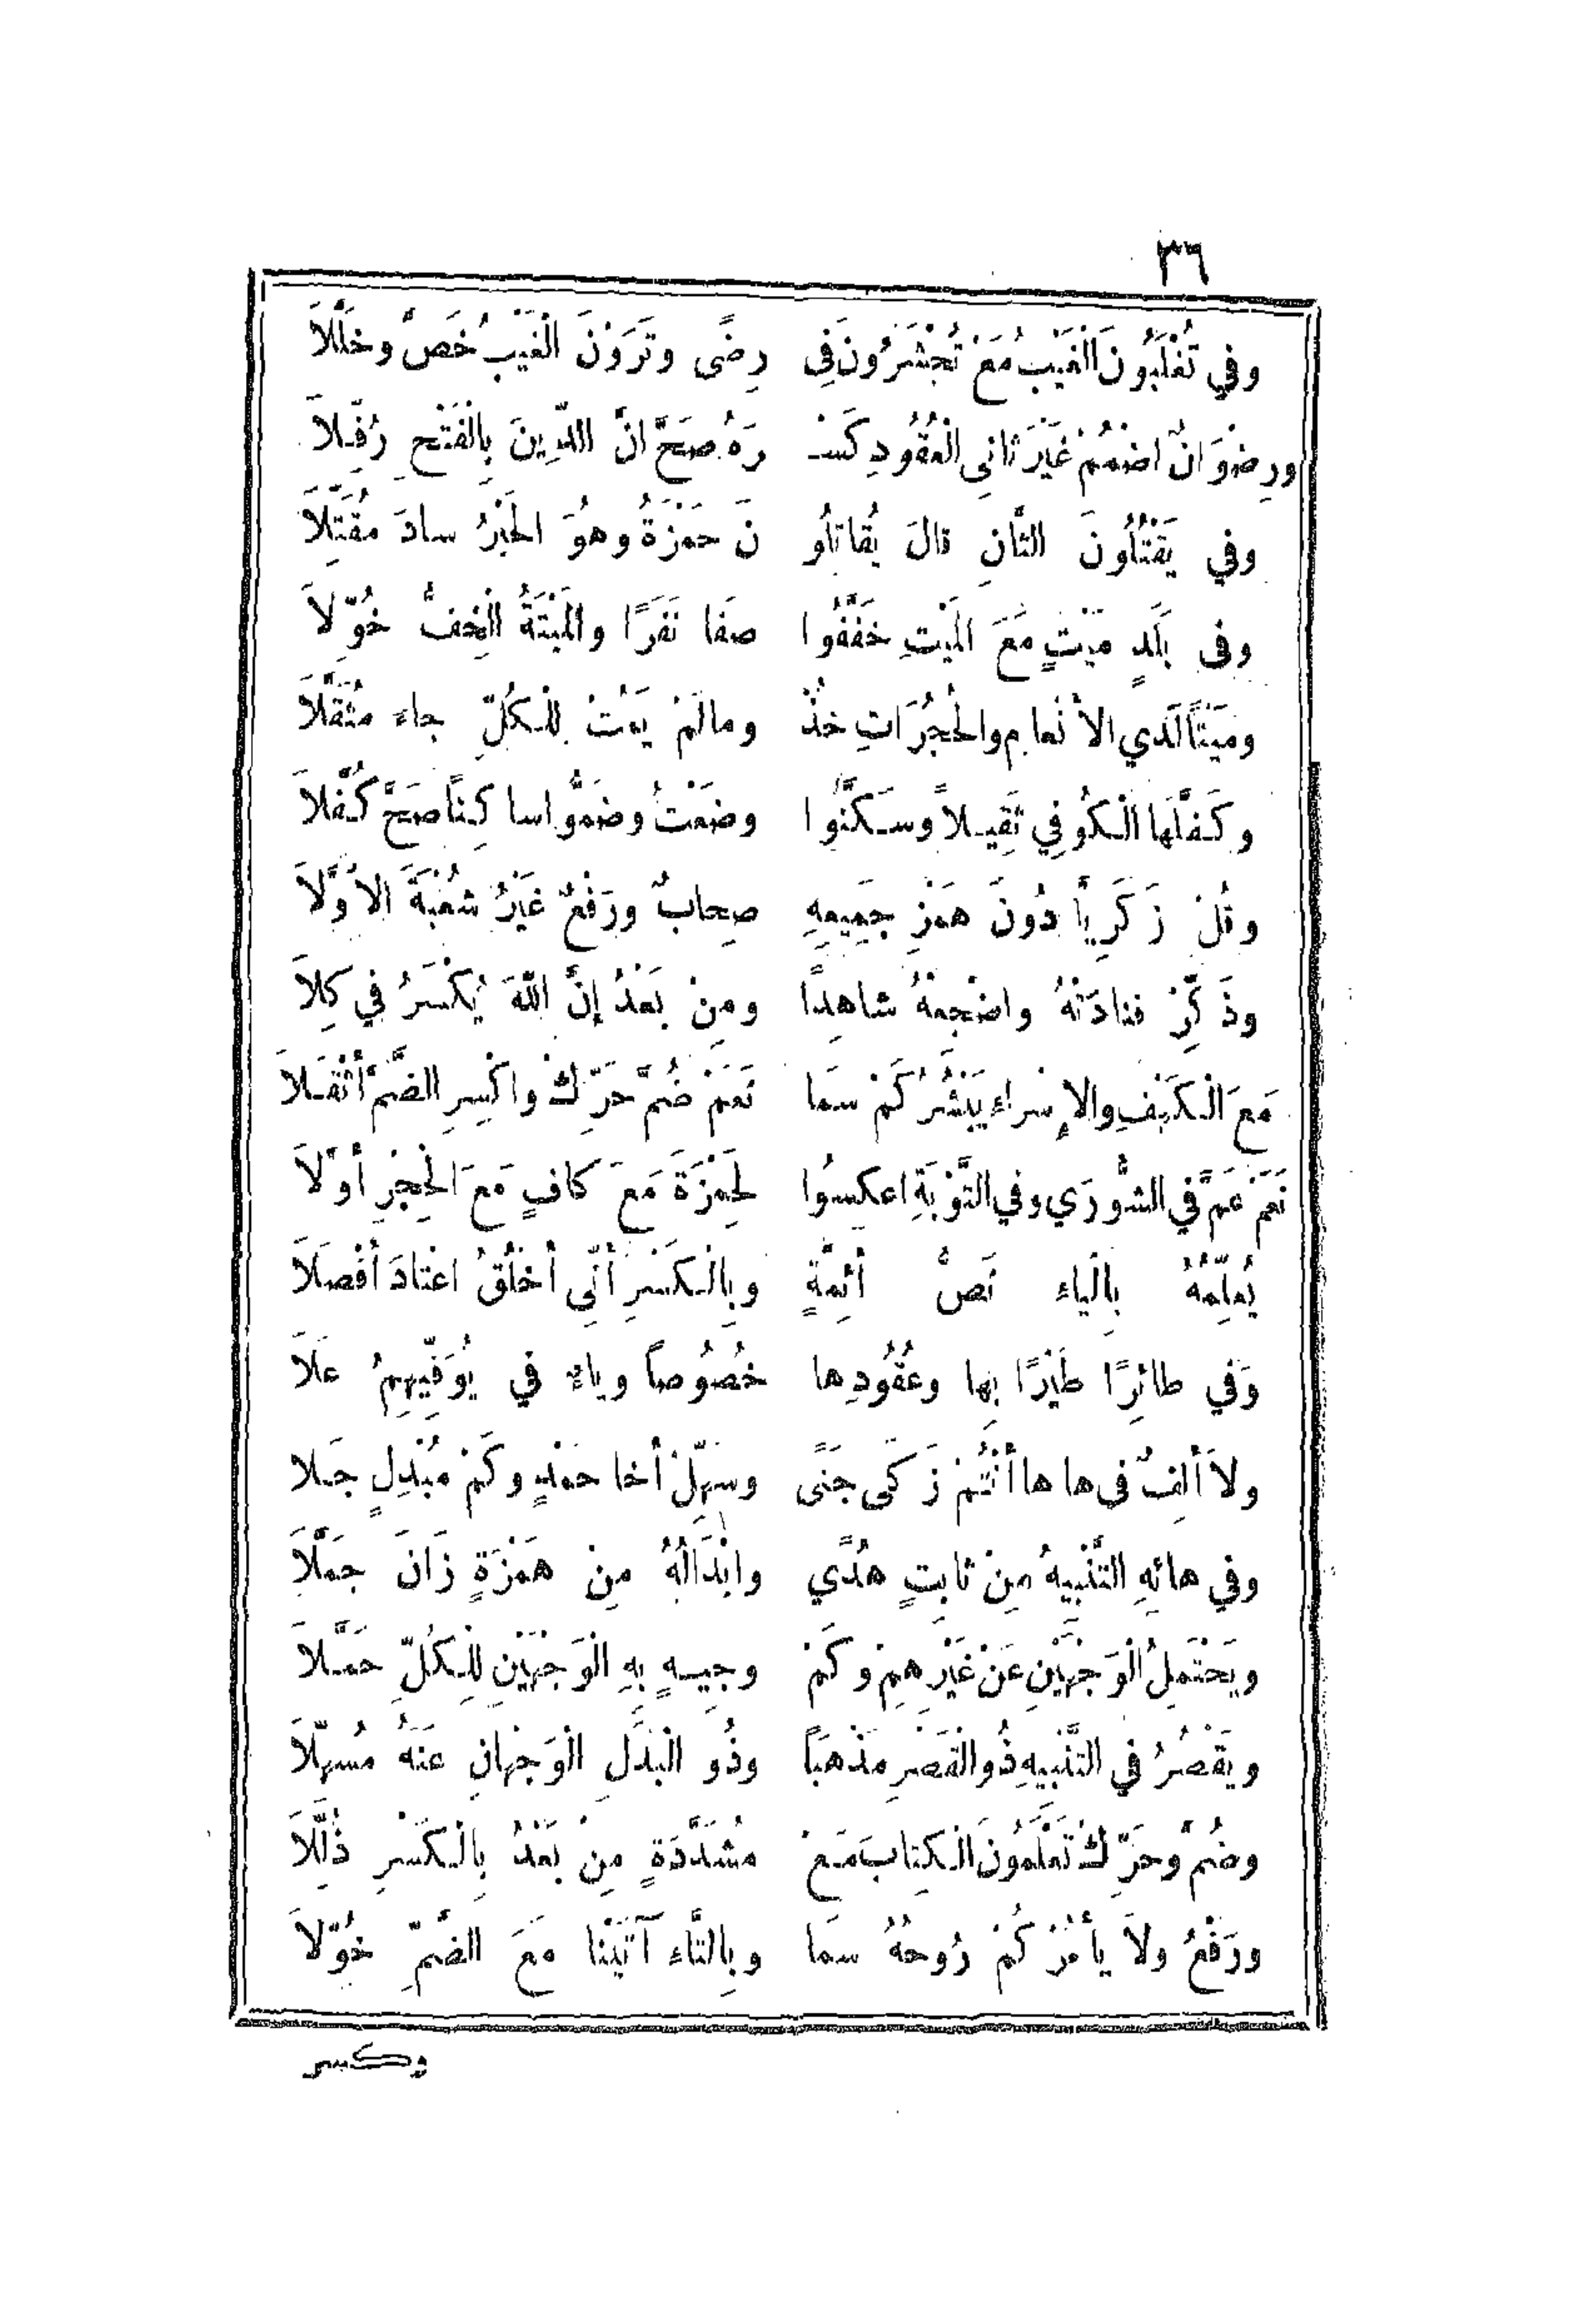 ٣٦
وفي تُغْلَبُونَ الْغَيْبُ مَعْ تُحْشَرُونَ فِي رِضًى وتَرَوْنَ الْغَيْبُ خَصَّ وخَلَّلاَ
ورِضْوَانٌ اضْمُمْ غَيْرَ ثانِي الْعُقُودِ كَسْـ رَهُ صَحَّ انَّ الدِّينَ بِالْفَتْحِ رُفِّلاَ
وفي يَقْتُلُونَ الثَّانِ قالَ يُقاتِلُو نَ حَمْزَةُ وهْوَ الحَبْرُ سادَ مُقَتِّلاَ
وفى بَلَدٍ مَيْتٍ مَعَ المَيْتِ خَفَّفُوا صَفَا نَفَرًا والمَيْتَةُ الْخِفُّ خُوِّلاَ
ومَيْتًا لَدي الأنْعامِ والحُجُرَاتِ خُذْ ومالَمْ يَمُتْ لِلْكُلِّ جاء مُثَقَّلاَ
وكَفَّلَهَا الْكُوفِي ثَقِيلاً وسَكَّنُوا وضَعْتُ وضَمُّوا ساكِنًا صَحَّ كُفَّلاَ
وقُلْ زَكَرِيَّا دُونَ هَمْزِ جَمِيعِهِ صِحابٌ ورَفْعٌ غَيْرُ شُعْبَةَ الاوَّلاَ
وذَكِّرْ فنادَتْهُ واضْجِعْهُ شاهِدًا ومِنْ بَعْدُ إنَّ اللّهَ يُكْسَرُ في كِلاَ
مَعَ الْكَهْفِ والإسْراء يَبْشُرُ كَمْ سَمَا نَعَمْ ضُمَّ حَرِّكْ واكْسِرِ الضَّمَّ أثْقَلاَ
نَعَمْ عَمَّ في الشُّورَي وفي التَّوْبَةِ اعكِسُوا لِحَمْزَةَ مَعَ كافٍ مَعَ الْحِجْرِ أوَّلاَ
يُعلِّمُهُ بِالْياء نَصُّ أئِمَّةٍ وبِالْكَسْرِ أنِّي أخْلُقُ اعْتادَ أفْصَلاَ
وَفي طائِرًا طَيْرًا بِها وعُقُودِها خُصُوصاً وياء في يُوَفِّيهِمُ عَلاَ
ولاَ ألِفٌ في ها ها أنْتُمْ زَكَى جَنًى وسَهِّلْ أخا حَمْدٍ وكَمْ مُبْدِلٍ جَلا
وفي هائِهِ التَّنْبِيهُ مِنْ ثابِتٍ هُدًي وإبْدَالُهُ مِنْ هَمْزَةٍ زَانَ جَمَّلاَ
ويَحْتَمِلُ الْوَجْهَيْنِ عَنْ غَيْرِهِمْ وكَمْ وجِيهٍ بِهِ الْوَجْهَيْنِ لِلْكُلِّ حَمَّلاَ
ويَقْصُرُ في التَّنْبِيهِ ذُو القَصْرِ مَذْهَباً وذُو الْبَدَلِ الْوَجْهانِ عَنْهُ مُسَهِّلاَ
وضُمَّ وحَرِّكْ تَعْلَمُونَ الْكِتابَ مَعْ مُشَدَّدَةٍ مِنْ بَعْدُ بِالْكَسْرِ ذُلِّلاَ
ورَفْعُ ولاَ يأمُرْكُمْ رُوحُهُ سَمَا وبِالتَّاء آتَيْنَا مَعَ الضَّمِّ خُوِّلاَ
وكسر